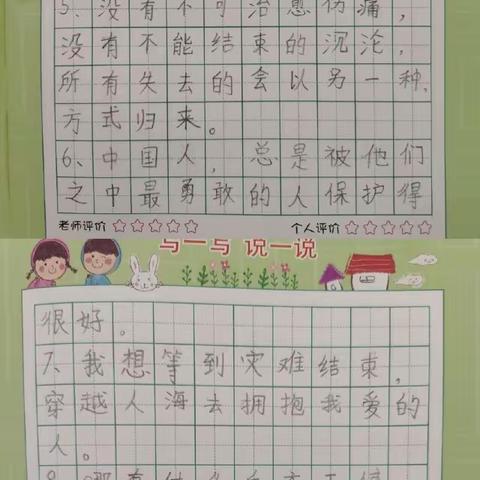 5、没有不可治愈伤痛，
没有不能结束的沉沦，
所有失去的会以另一种
方式归来。
6、中国人，总是被他们
之中最勇敢的人保护得
老师评价 个人评价
写一写 说一说
很好。
7、我想等到灾难结束，
穿越人海去拥抱我爱的
人。